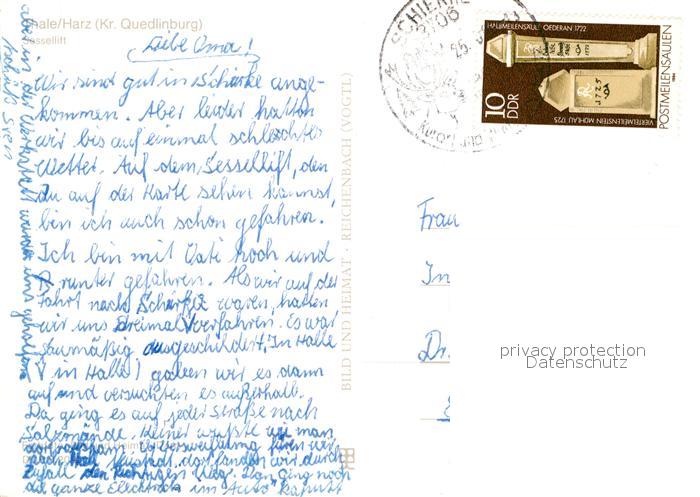 Thale/Harz (Kr. Quedlinburg)
Sessellift
Liebe Oma!
Wir sind gut in Schierke ange-
kommen. Aber leider hatten
wir bis auf einmal schlechtes
Wetter. Auf dem Sessellift, den
du auf der Karte sehen kannst,
bin ich auch schon gefahren.
Ich bin mit Vati hoch und
runter gefahren. Als wir auf der
Fahrt nach Schierke waren, hatten
wir uns dreimal verfahren. Es war
saumäßig ausgeschildert. In Halle
(in Halle) gaben wir es dann
auf und versuchten es außerhalb.
Da ging es auf jeder Straße nach
Salzmünde. Keiner wußte wo man
Verzweiflung fuhren wir
nach Neustadt, dort fanden wir durch
Zufall den richtigen Weg. Dann ging noch
die ganze Electrick im Auto kaputt
aber in der Werkstatt wurde uns geholfen
Sven
BILD UND HEIMAT · REICHENBACH (VOGTL)
SCHIERKE
3706
10
DDR
HALBMEILENSÄULE OEDERAN 1722
VIERTELMEILENSTEIN MÜHLAU 1725
POSTMEILENSÄULEN
Frau
In
Dr.
privacy protection
Datenschutz